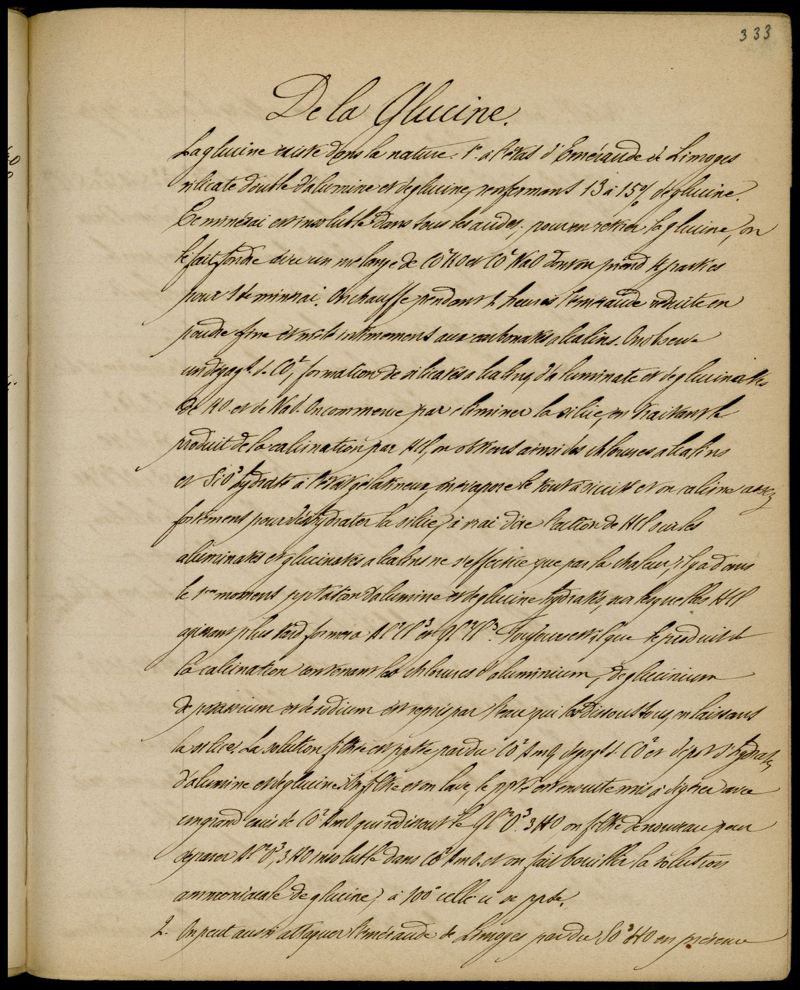 333
De la Glucine.
La glucine existe dans la nature. 1° à l'état d'Emeraude de Limoges
silicate double d'alumine et de glucine, renfermant 13 à 15 % de glucine.
Ce minérai est insoluble dans tous les acides, pour en retirer la glucine, on
le fait fondre avec un mélange de CO²KO et CO²NaO dont on prend 4 parties
pour 1 de minérai. On chauffe pendant 2 heures l'émeraude réduite en
poudre fine et mêlée intimement aux carbonates alcalins. On observe
un dégagt. de CO², formation de silicates alcalins, d'aluminate et de glucinate
de KO et de NaO. On commence par éliminer la silice, en traitant le
produit de la calcination par HCl, on obtient ainsi des chlorures alcalins
et SiO³ hydraté à l'état gelatineux, on évapore le tout à siccité et on calcine assez
fortement pour déshydrater la silice, à vrai dire l'action de HCl sur les
aluminates et glucinates alcalins ne s'effectue que par la chaleur, il y a dans
le 1er moment pptation d'alumine et de glucine hydratées, sur lesquelles HCl
agissant plus tard formera Al²Cl³ et Gl²Cl³. Toujours est-il que le produit de
la calcination contenant les chlorures d'aluminium, de glucinium
de potassium et de sodium est repris par l'eau qui les dissout tous, en laissant
la silice. La solution filtrée est pptée par du CO²AmO, dégagt de CO² et dépot d'hydrates
d'alumine et de glucine. On filtre et on lave, le ppté est ensuite mis à digérer avec
un grand excès de CO²AmO qui redissout le Gl²O³, 3HO on filtre de nouveau pour
séparer Al²O³, 3HO insoluble dans CO²AmO. et on fait bouillir la solution
ammoniacale de glucine, à 100° celle ci se ppte.
2. On peut aussi attaquer l'émeraude de Limoges par du SO³HO en présence